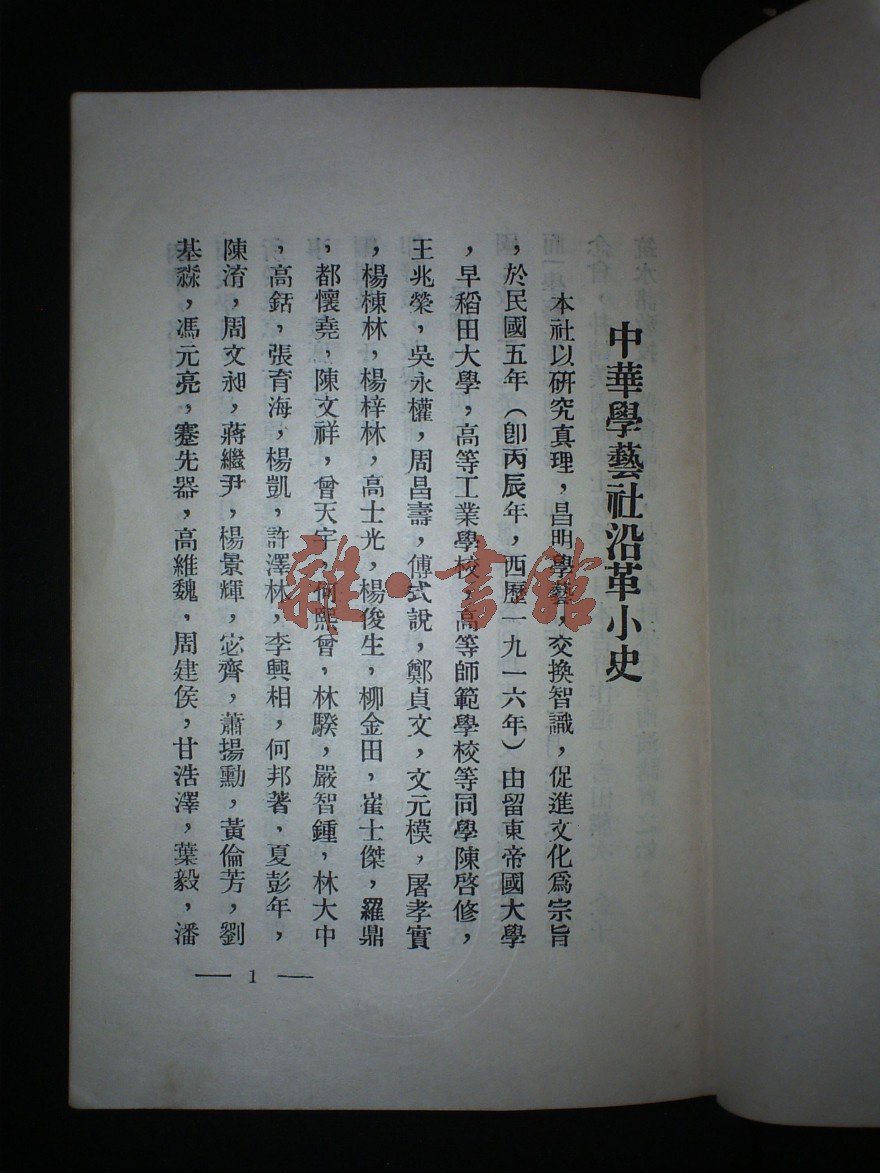 中華學藝社沿革小史
本社以硏究真理，昌明學藝，交換智識，促進文化爲宗旨
，於民國五年（卽丙辰年，西歷一九一六年）由留東帝國大學
，早稻田大學，高等工業學校，高等師範學校等同學陳啓修，
王兆榮，吳永權，周昌壽，傅式說，鄭貞文，文元模，屠孝實
，楊棟林，楊梓林，高士光，楊俊生，柳金田，崔士傑，羅鼎
，都懷堯，陳文祥，曾天宇，何熙曾，林騤，嚴智鍾，林大中
，高銛，張育海，楊凱，許澤林，李興相，何邦著，夏彭年，
陳淯，周文昶，蔣繼尹，楊景輝，宓齊，蕭揚勳，黃倫芳，劉
基淼，馮元亮，蹇先器，高維魏，周建侯，甘浩澤，葉毅，潘
— 1 —
雜·書館